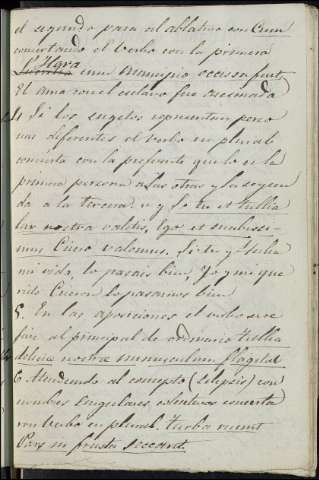 el segundo para el ablativo con Cum
concertando el verbo con la primera
Hera cum mancipio occissa fuit
El ama con el esclavo fue asecinada
4 Si los sugetos representan perso
nas diferentes el verbo en plural
concierta con la preferente que lo es la
primera persona a las otras y la segun
da a la tercera. v. g. Si tu et tullia
lux nostra valetis, Ego et suabissi-
mus Cicero valemus. Si tu y tulia
mi vida, lo pasais bien, Yo y mi que
rido Ciceron lo pasamos bien
5. En las aposiciones el verbo se re
fiere al principal de ordinario tullia
deliciæ nostræ munusculum flagitat
6 Atendiendo al concepto (Silepsis) con
nombres singulares colectivos concierta
con verbo en plural. turba ruunt
Pars in frusta seccant.